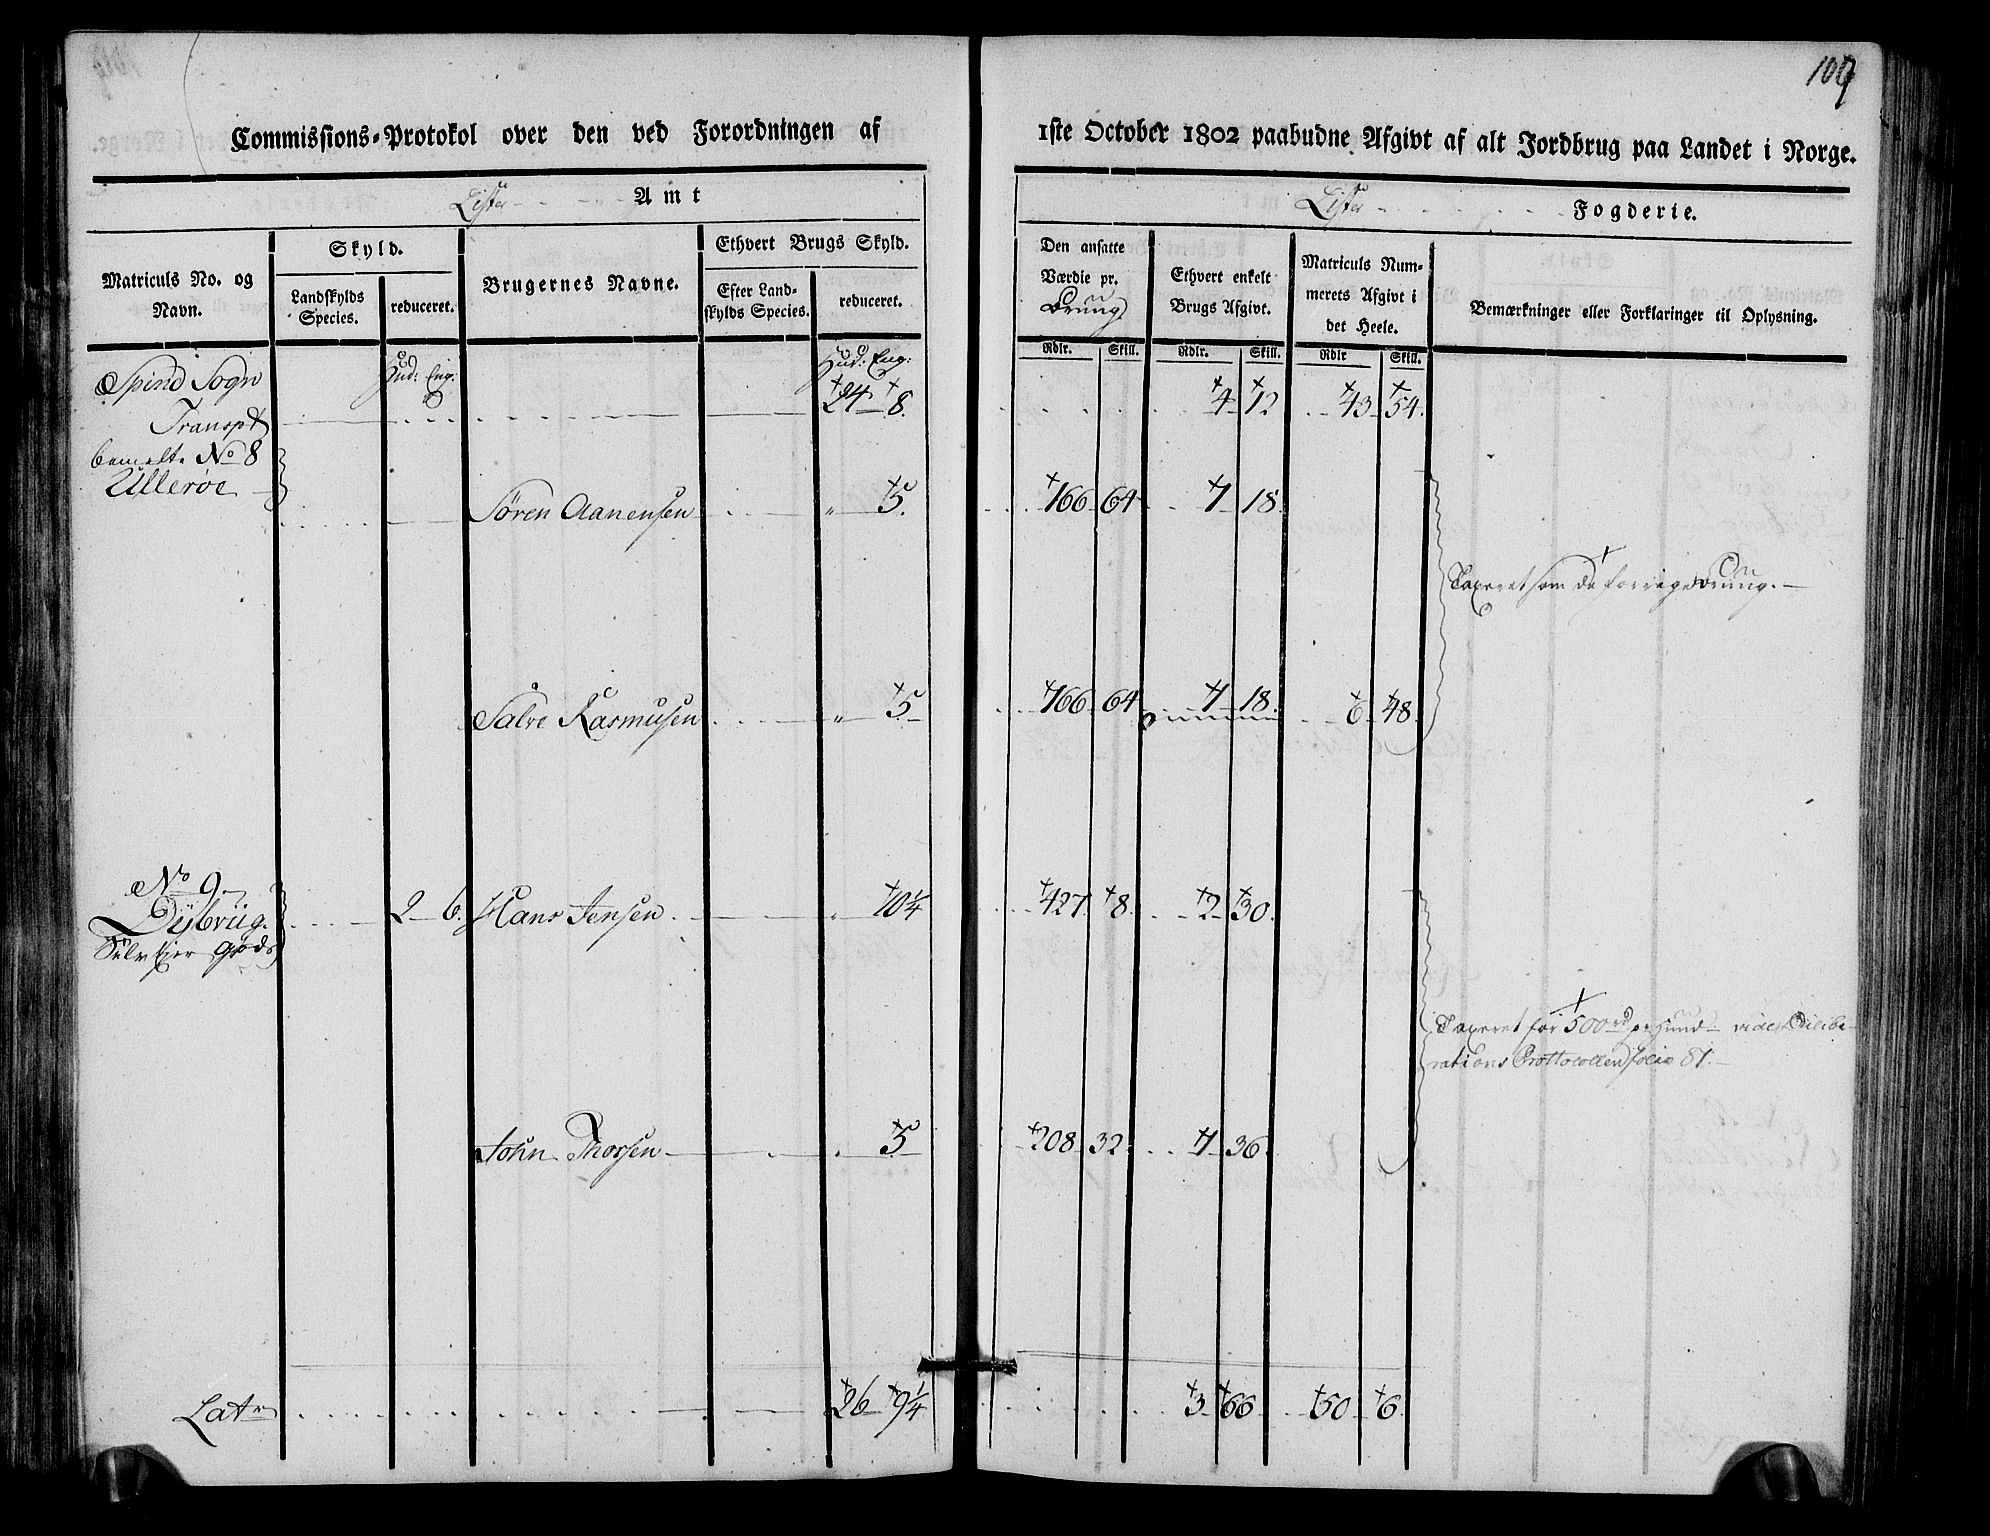 109
Commissions-Protokol over den ved Forordningen af 1ste October 1802 paabudne Afgivt af alt Jordbrug paa Landet i Norge.
Lister Amt
Lister Fogderie.
Matriculs No. og Navn.
Skyld.
Landskylds Species.
reduceret.
Brugernes Navne.
Ethvert Brugs Skyld.
Efter Landskylds Species.
reduceret.
Den ansatte Værdie pr. Brug
Ethvert enkelt Brugs Afgivt.
Matriculs Nummerets Afgivt i det Heele.
Bemærkninger eller Forklaringer til Oplysning.
Rdlr. Skill. Rdlr. Skill. Rdlr Skill.
Hud: Eng. Hud: Eng:
Spind Sogn
Transpt 24 8. 4 12 43 54.
bemelte No 8
Ullerøe
Søren Aanensen " 5. 166 64 1 18
Taxeret som de forrige Brug.
Salve Rasmusen " 5 166 64 1 18 6 48
No 9
Dÿbvüg. 2 6. Hans Jensen " 10 1/4 427 8. 2 30
Selv Eier Gods
Taxeret for 500 rd pr Hund vide Delibe-
rations Prottocollen folio 81.
John Thorsen " 5 208 32 1 36
Latr 26 9 1/4 3 66 50 6